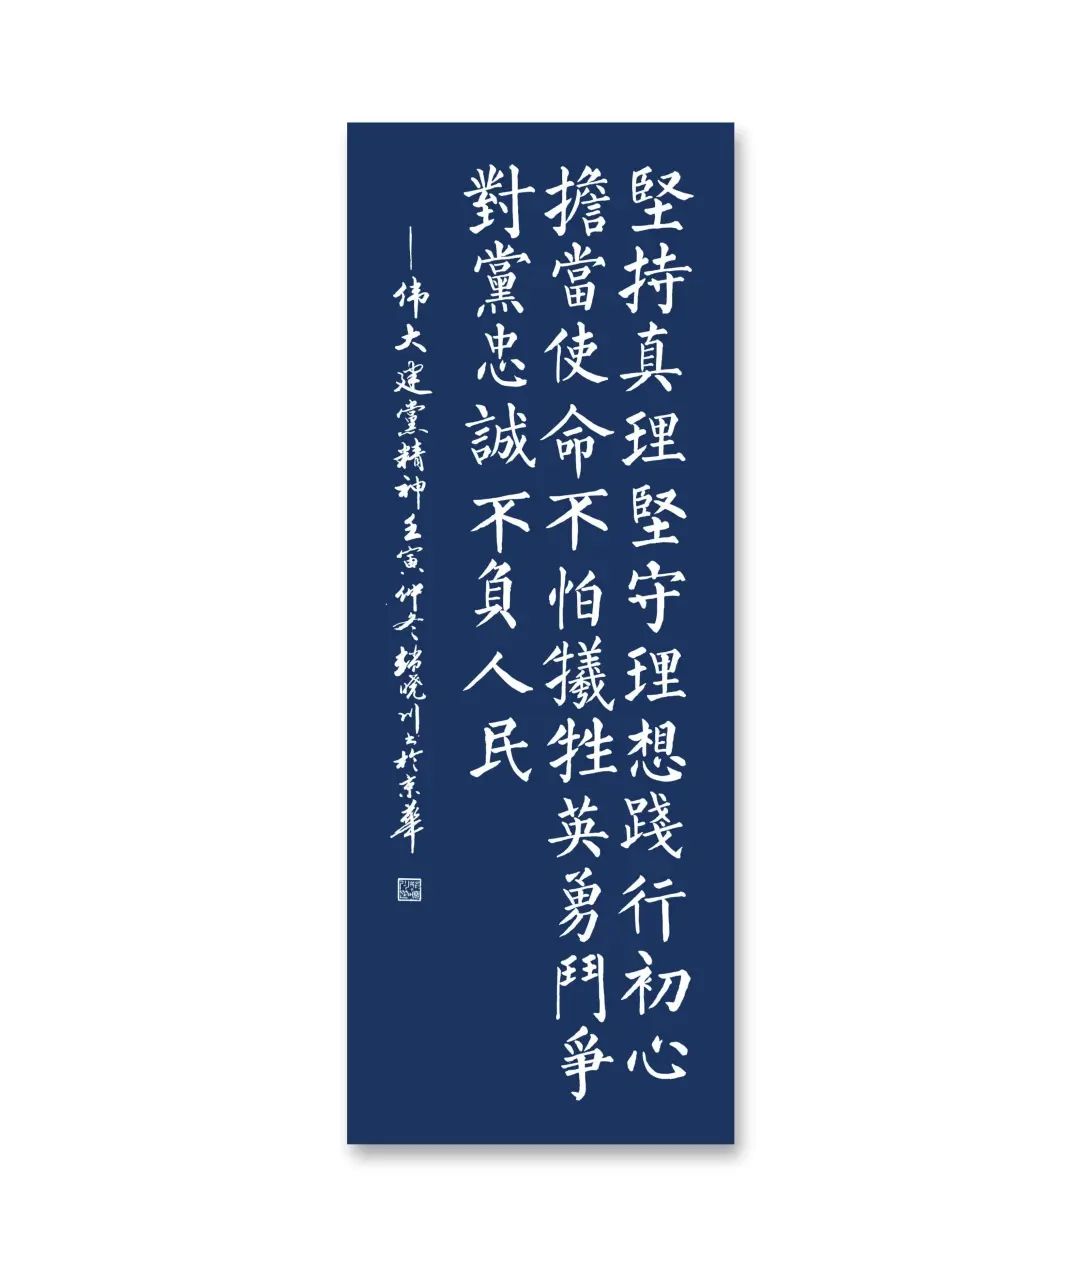 堅持真理堅守理想踐行初心
擔當使命不怕犧牲英勇鬥爭
對黨忠誠不負人民
—伟大建黨精神壬寅仲冬趙曉川書於京華